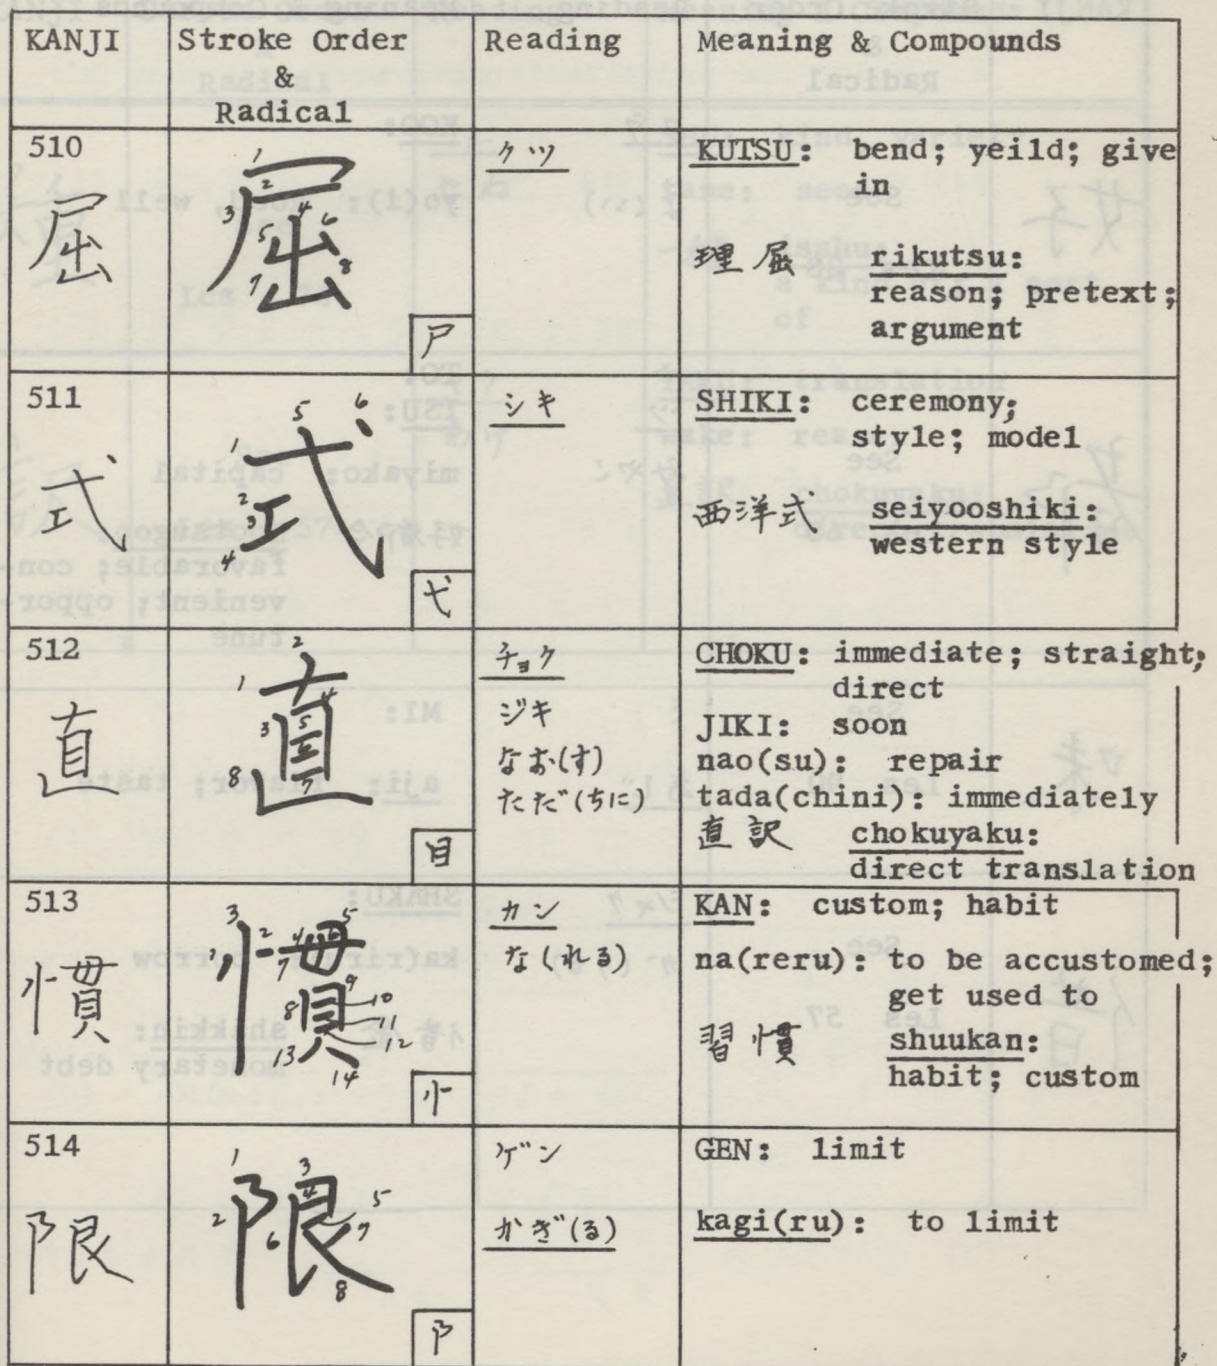 KANJI Stroke Order Reading Meaning & Compounds
&
Radical
510
屈
屈
1 2 3 4 5 6 7 8
尸
クツ
KUTSU: bend; yeild; give
in
理屈 rikutsu:
reason; pretext;
argument
511
式
式
1 2 3 4 5 6
弋
シキ
SHIKI: ceremony;
style; model
西洋式 seiyooshiki:
western style
512
直
直
1 2 3 4 5 6 7 8
目
チョク
ジキ
なお(す)
ただ(ちに)
CHOKU: immediate; straight;
direct
JIKI: soon
nao(su): repair
tada(chini): immediately
直訳 chokuyaku:
direct translation
513
慣
慣
1 2 3 4 5 6 7 8 9 10 11 12 13 14
忄
カン
な(れる)
KAN: custom; habit
na(reru): to be accustomed;
get used to
習慣 shuukan:
habit; custom
514
限
限
1 2 3 4 5 6 7 8
阝
ゲン
かぎ(る)
GEN: limit
kagi(ru): to limit